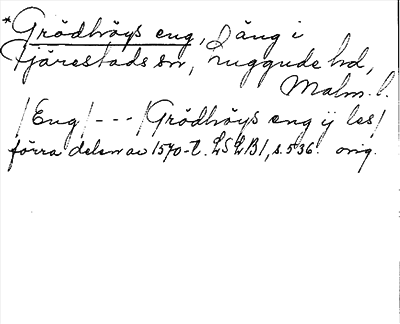 *Grödhöys eng, äng i
Tjärestads sn, Luggude hd,
Malm. l.
/Eng/---/Grödhöys eng ij les/
förra delen av 1570-t. LSLB1, s. 536. orig.